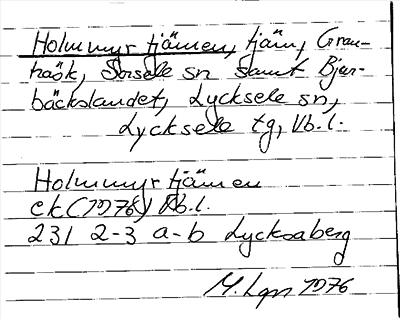 Holmmyrtjärnen, tjärn, Gran-
träsk, Sorsele sn samt Bjur-
bäckslandet, Lycksele sn,
Lycksele tg, Vb. l.
Holmmyrtjärnen
ek (1976) Vb. l.
231 2-3 a-b Lycksaberg
M. Lgn 1976